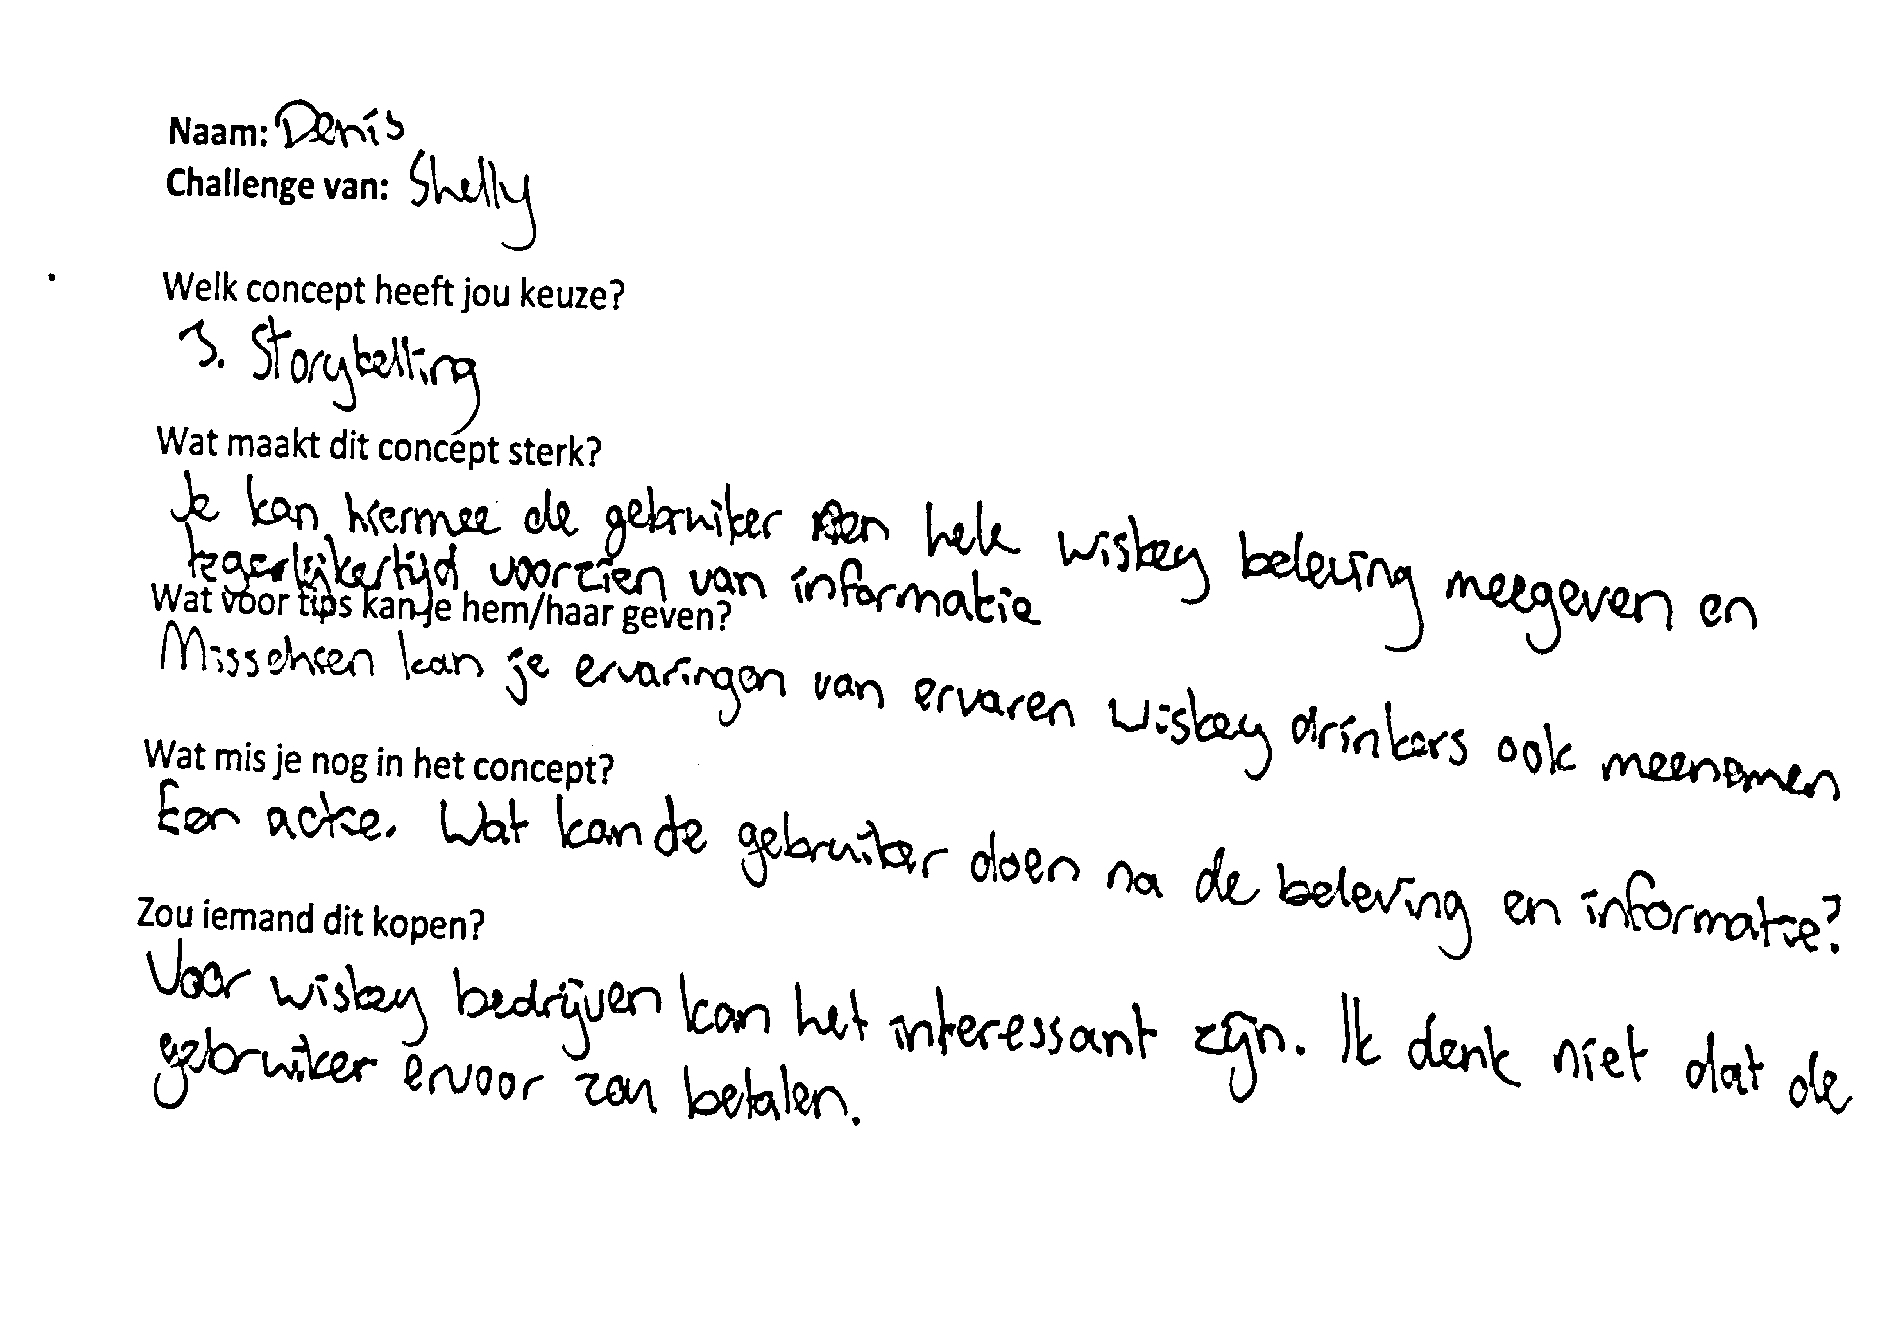 Naam: Denis
Challenge van: Shelly
Welk concept heeft jou keuze?
3. Storytelling
Wat maakt dit concept sterk?
Je kan hiermee de gebruiker een hele wiskey beleving meegeven en
tegerlijkertijd voorzien van informatie
Wat voor tips kan je hem/haar geven?
Misschien kan je ervaringen van ervaren wiskey drinkers ook meenemen
Wat mis je nog in het concept?
Een actie. Wat kan de gebruiker doen na de beleving en informatie?
Zou iemand dit kopen?
Voor wiskey bedrijven kan het interessant zijn. Ik denk niet dat de
gebruiker ervoor zou betalen.